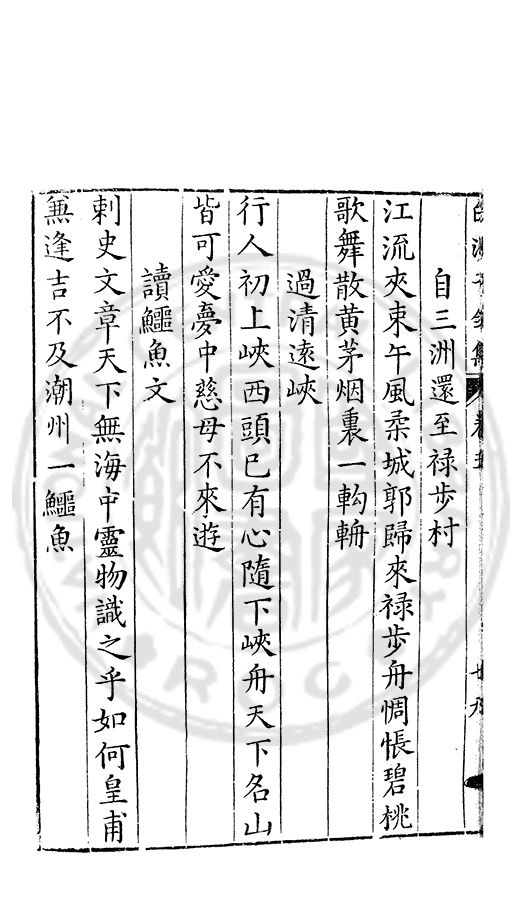 自三洲還至祿步村
江流夾束午風柔城郭歸來祿步舟惆悵碧桃
歌舞散黄茅烟裏一鞫輈
過清遠峽
行人初上峽西頭已有心隨下峽舟天下名山
皆可愛夢中慈母不來遊
讀鱷魚文
刺史文章天下無海中靈物識之乎如何皇甫
無逢吉不及潮州一鱷魚